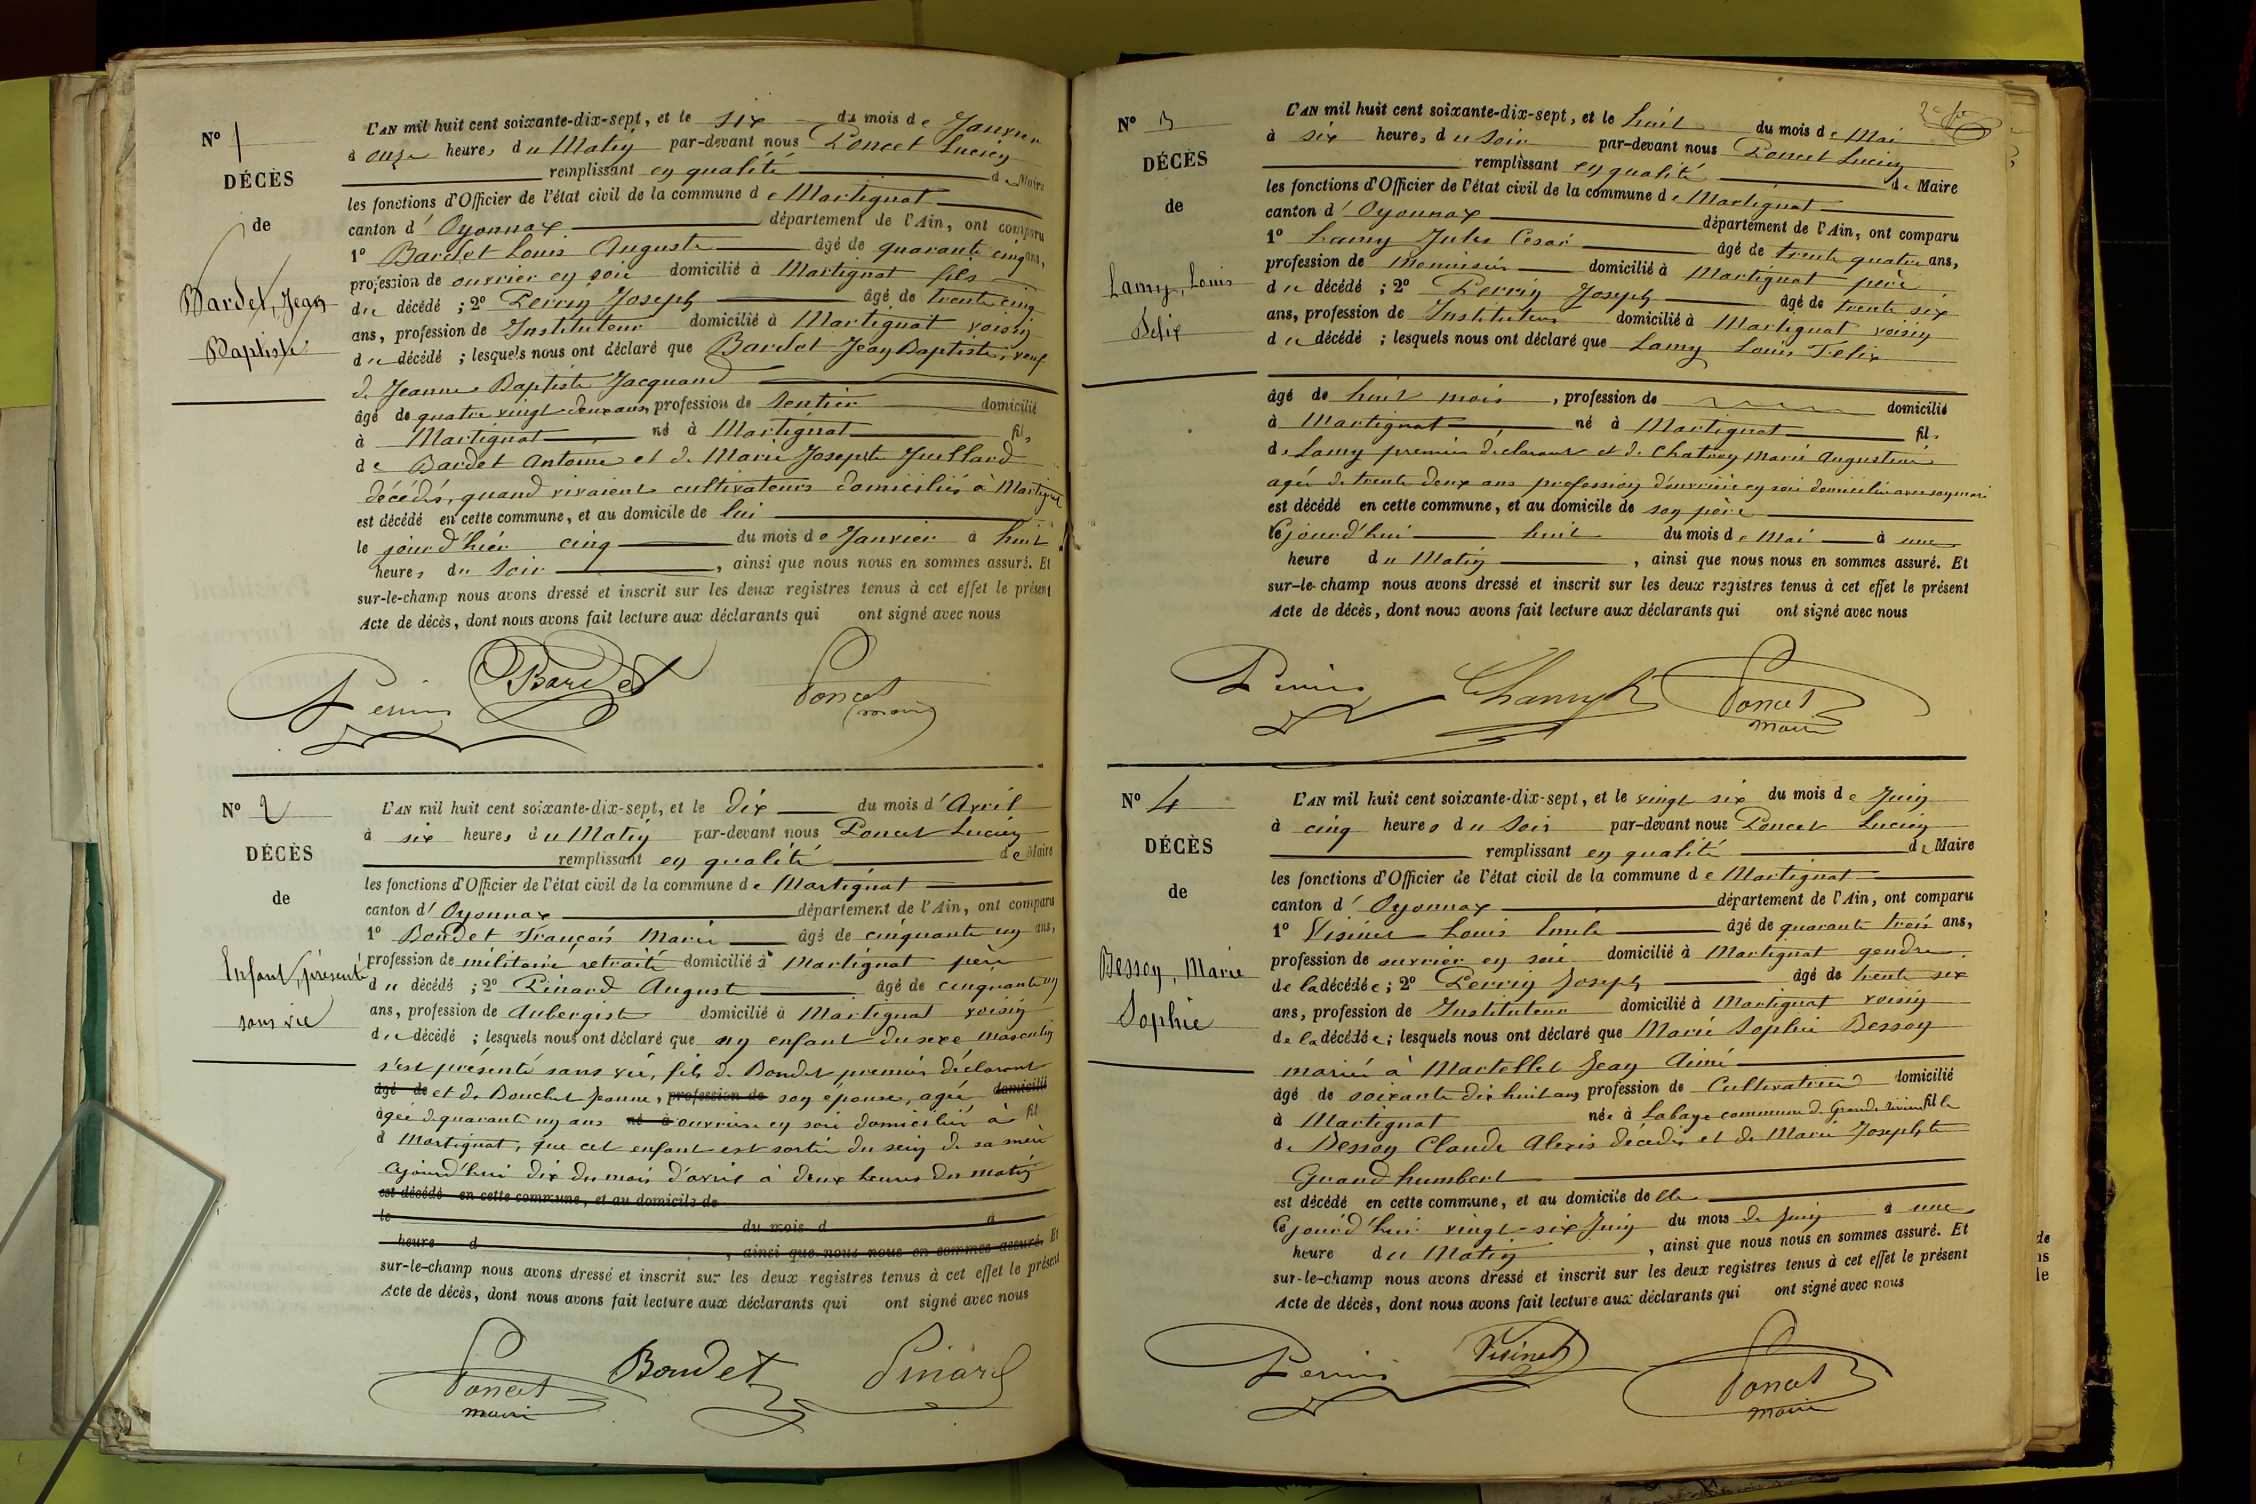 N° 1
DÉCÈS
de
Bardet, Jean
Baptiste
L'AN mil huit cent soixante-dix-sept, et le six du mois de Janvier
à onze heures du Matin par-devant nous Poncet Lucien
remplissant en qualité de Maire
les fonctions d'Officier de l'état civil de la commune de Martignat
canton d'Oyonnax département de l'Ain, ont comparu
1° Bardet Louis Auguste âgé de quarante cinq ans,
profession de ouvrier en soie domicilié à Martignat fils
du décédé ; 2° Perrin Joseph âgé de trente cinq
ans, profession de Instituteur domicilié à Martignat voisin
du décédé ; lesquels nous ont déclaré que Bardet Jean Baptiste, veuf
de Jeanne Baptiste Jacquand
âgé de quatre vingt deux ans, profession de rentier domicilié
à Martignat né à Martignat fils
de Bardet Antoine et de Marie Josephte Juillard
décédés, quand vivaient cultivateurs domiciliés à Martignat
est décédé en cette commune, et au domicile de lui
le jour d'hier cinq du mois de Janvier à huit
heures du Soir , ainsi que nous nous en sommes assuré. Et
sur-le-champ nous avons dressé et inscrit sur les deux registres tenus à cet effet le présent
Acte de décès, dont nous avons fait lecture aux déclarants qui ont signé avec nous
Perrin Bardet Poncet
maire
N° 2
DÉCÈS
de
Enfant, présenté
sans vie
L'AN mil huit cent soixante-dix-sept, et le dix du mois d'Avril
à six heures du Matin par-devant nous Poncet Lucien
remplissant en qualité de Maire
les fonctions d'Officier de l'état civil de la commune de Martignat
canton d'Oyonnax département de l'Ain, ont comparu
1° Boudet François Marie âgé de cinquante un ans,
profession de militaire retraité domicilié à Martignat père
du décédé ; 2° Pinard Auguste âgé de cinquante un
ans, profession de Aubergiste domicilié à Martignat voisin
du décédé ; lesquels nous ont déclaré que un enfant du sexe masculin
s'est présenté sans vie, fils de Boudet premier déclarant
âgé de et de Bouchet Jeanne, profession de son épouse, agée domicilié
agée de quarante un ans né à ouvrière en soie domiciliée à fil
à Martignat, que cet enfant est sorti du sein de sa mère
cejourd'hui dix du mois d'avril à deux heures du matin
est décédé en cette commune, et au domicile de
le du mois d à
heure d , ainsi que nous nous en sommes assuré. Et
sur-le-champ nous avons dressé et inscrit sur les deux registres tenus à cet effet le présent
Acte de décès, dont nous avons fait lecture aux déclarants qui ont signé avec nous
Poncet Boudet Pinard
maire
N° 3
DÉCÈS
de
Lamy, Louis
Felix
L'AN mil huit cent soixante-dix-sept, et le huit du mois de Mai
à six heures du soir par-devant nous Poncet Lucien
remplissant en qualité de Maire
les fonctions d'Officier de l'état civil de la commune de Martignat
canton d'Oyonnax département de l'Ain, ont comparu
1° Lamy Jules Cesar âgé de trente quatre ans,
profession de Menuisier domicilié à Martignat père
du décédé ; 2° Perrin Joseph âgé de trente six
ans, profession de Instituteur domicilié à Martignat voisin
du décédé ; lesquels nous ont déclaré que Lamy Louis Felix
âgé de huit mois , profession de domicilié
à Martignat né à Martignat fils
de Lamy premier déclarant et de Chatrey Marie Augustine
agée de trente deux ans profession d'ouvrière en soie domiciliée avec son mari
est décédé en cette commune, et au domicile de son père
Cejourd'hui huit du mois de Mai à une
heure du Matin , ainsi que nous nous en sommes assuré. Et
sur-le-champ nous avons dressé et inscrit sur les deux registres tenus à cet effet le présent
Acte de décès, dont nous avons fait lecture aux déclarants qui ont signé avec nous
Perrin Poncet
maire
N° 4
DÉCÈS
de
Besson, Marie
Sophie
L'AN mil huit cent soixante-dix-sept, et le vingt six du mois de Juin
à cinq heures du Soir par-devant nous Poncet Lucien
remplissant en qualité de Maire
les fonctions d'Officier de l'état civil de la commune de Martignat
canton d'Oyonnax département de l'Ain, ont comparu
1° Visinet Louis Emile âgé de quarante trois ans,
profession de ouvrier en soie domicilié à Martignat gendre
de la décédée ; 2° Perrin Joseph âgé de trente six
ans, profession de Instituteur domicilié à Martignat voisin
de la décédée ; lesquels nous ont déclaré que Marie Sophie Besson
mariée à Martellet Jean Aimé
âgé de soixante dix huit ans profession de Cultivatrice domicilié
à Martignat née à Labaye commune de Grande rivière fille
de Besson Claude Alexis décédé et de Marie Josephte
Grandhumbert
est décédé en cette commune, et au domicile de elle
Cejourd'hui vingt-six Juin du mois de Juin à une
heure du Matin , ainsi que nous nous en sommes assuré. Et
sur-le-champ nous avons dressé et inscrit sur les deux registres tenus à cet effet le présent
Acte de décès, dont nous avons fait lecture aux déclarants qui ont signé avec nous
Perrin Visinet Poncet
maire